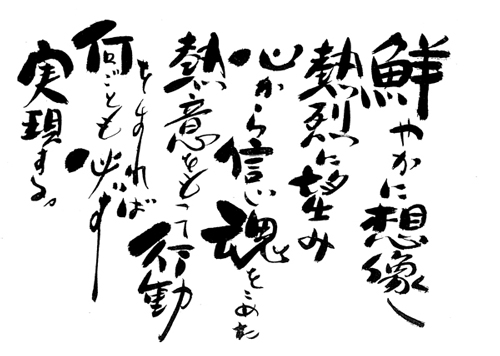 鮮やかに想像し
熱烈に望み
心から信じ魂をこめた
熱意をもって行動
をすれば
何ごとも必ず
実現する。